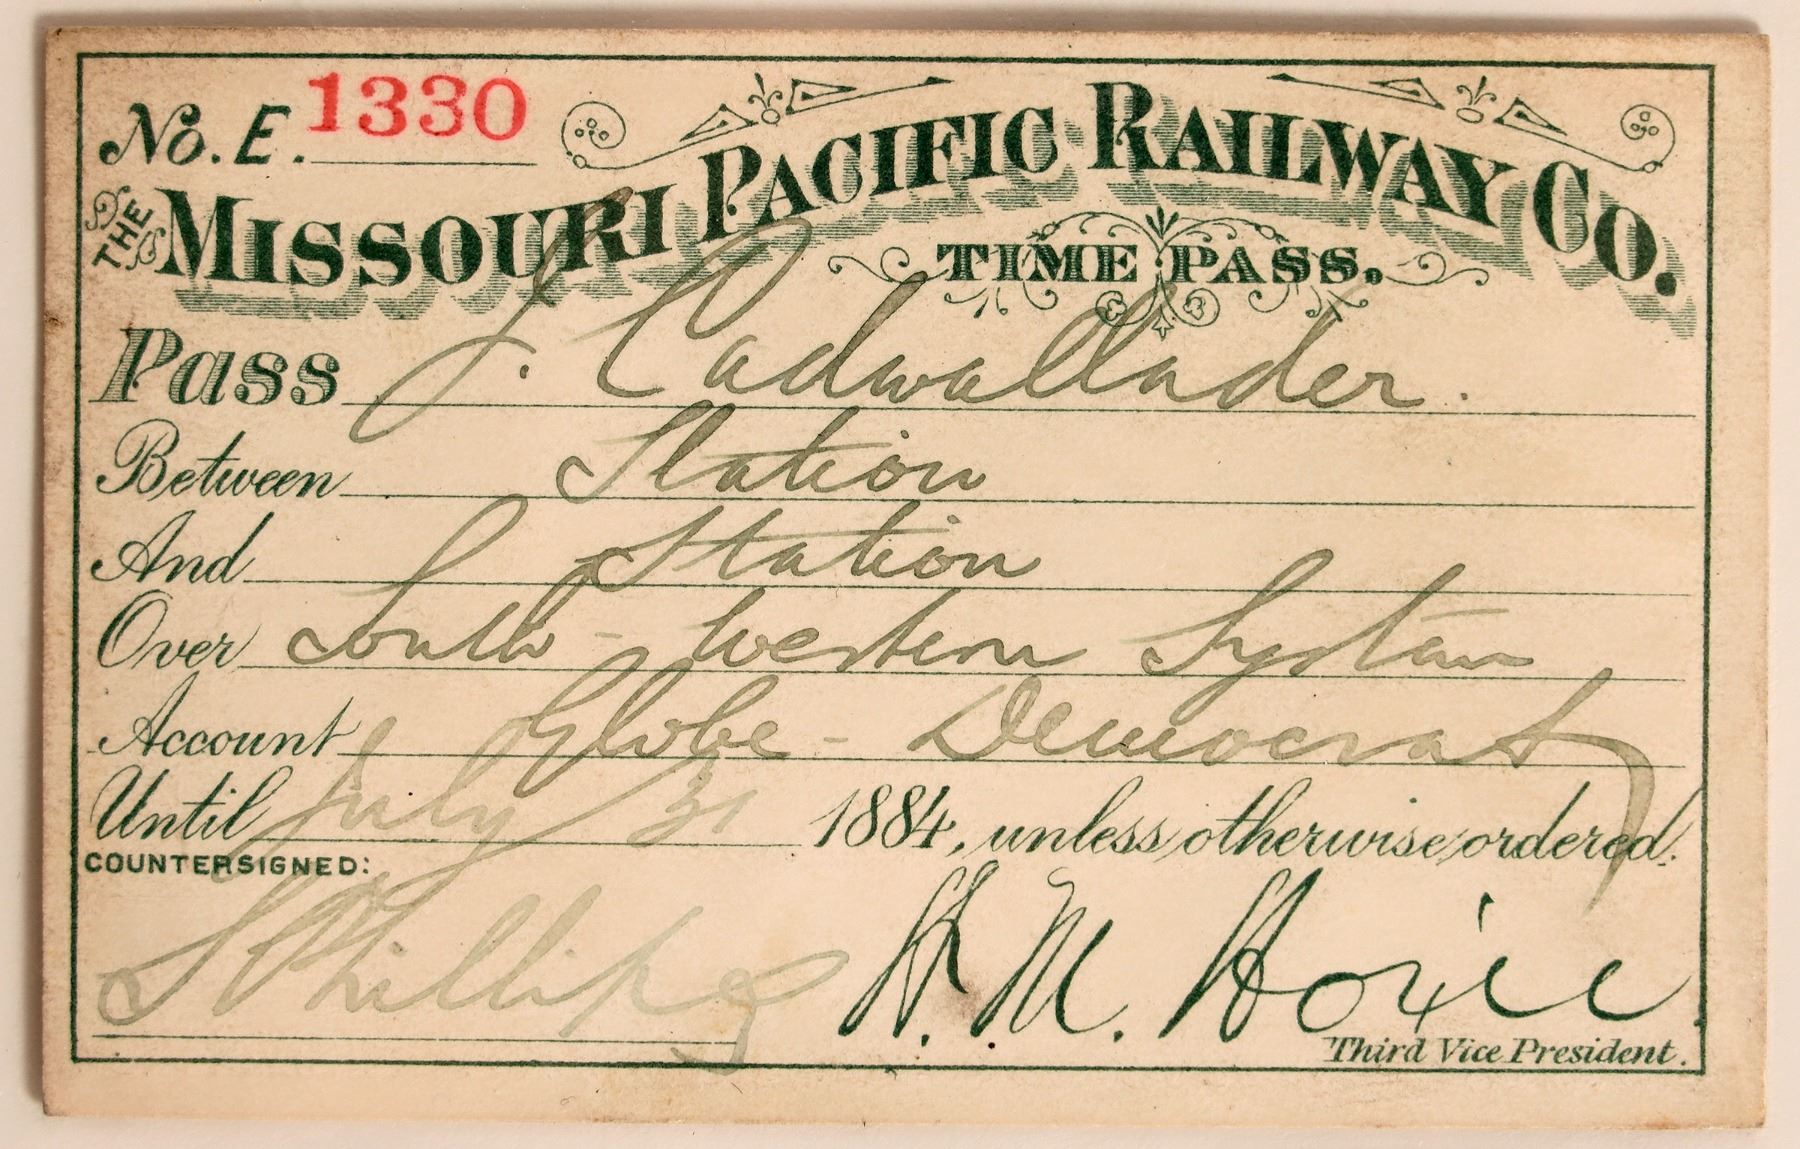 No. E. 1330
THE MISSOURI PACIFIC RAILWAY CO.
TIME PASS.
Pass J. Cadwallader.
Between Station
And Station
Over South-Western System
Account Globe-Democrat
Until July 31 1884, unless otherwise ordered.
COUNTERSIGNED:
S Phillips H. M. Hoxie
Third Vice President.